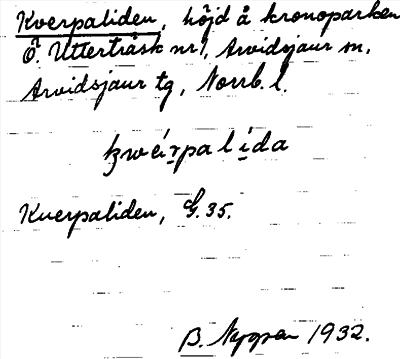 Kverpaliden, höjd å kronoparken
Ö. Utterträsk nr 1, Arvidsjaur sn,
Arvidsjaur tg, Norrb. l.
kveírpalída
Kuerpaliden, G. 35.
B. 1932.